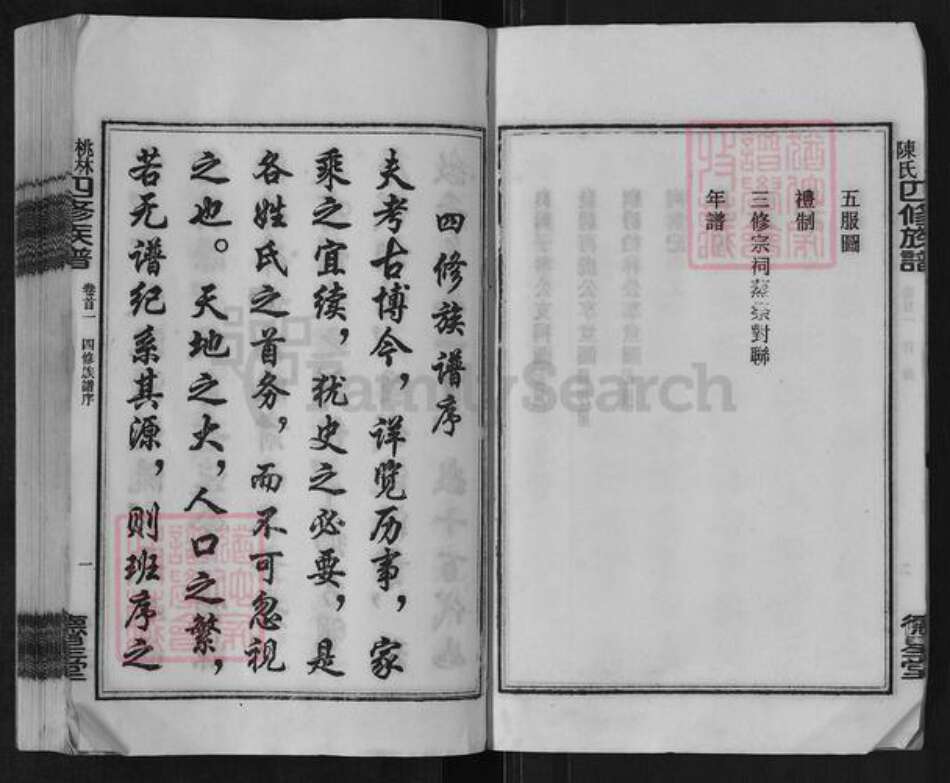 陳氏四修族譜
五服圖
禮制
三修宗祠蒸祭對聯
年譜
德星堂
四修族谱序
夫考古博今，详览历事，家
乘之宜续，犹史之必要，是
各姓氏之首务，而不可忽视
之也。天地之大，人口之繁，
若无谱纪系其源，则班序之
桃林四修族譜
卷首一
四修族譜序
一
德星堂
FamilySearch